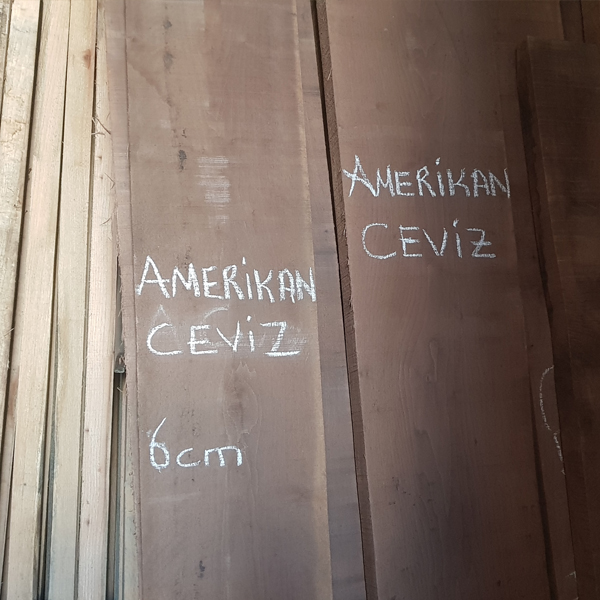 AMERİKAN
CEVİZ
6cm
AMERİKAN
CEVİZ